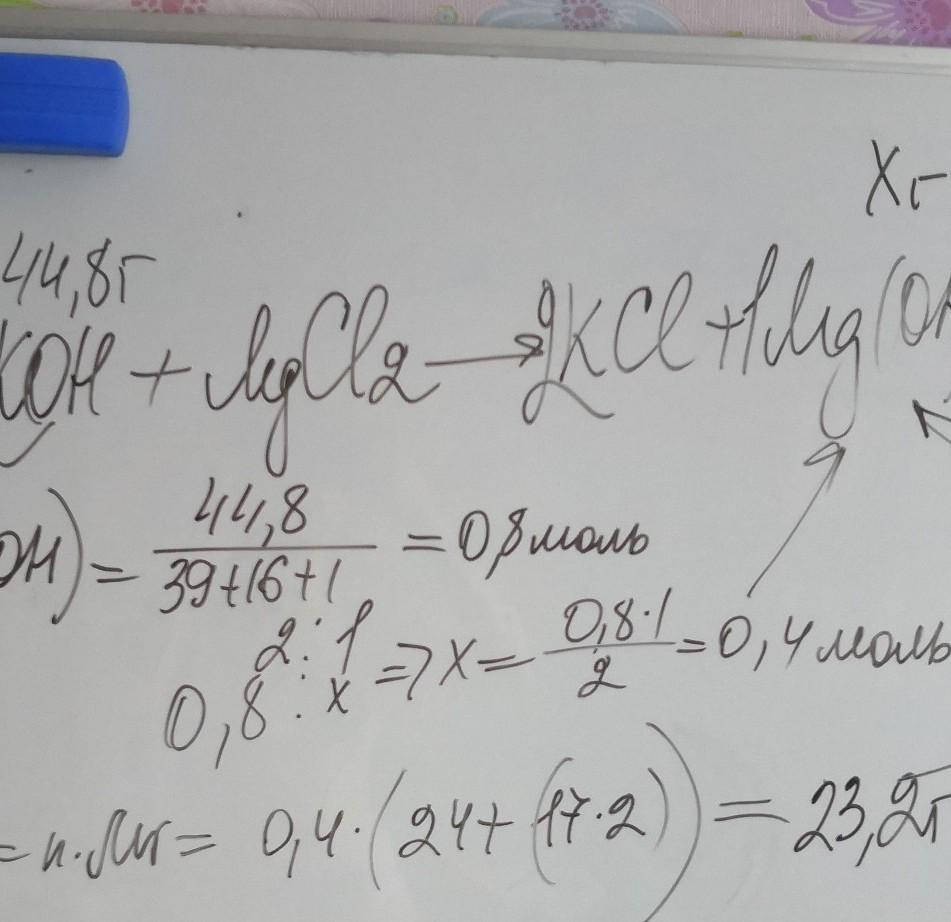 Xг
44,8г
KOH + MgCl2 → 2KCl + 1Mg(OH
OH) = 44,8 / 39+16+1 = 0,8 моль
2 : 1
0,8 : x => x = 0,8·1 / 2 = 0,4 моль
= n·Mr = 0,4·(24+(17·2)) = 23,2г